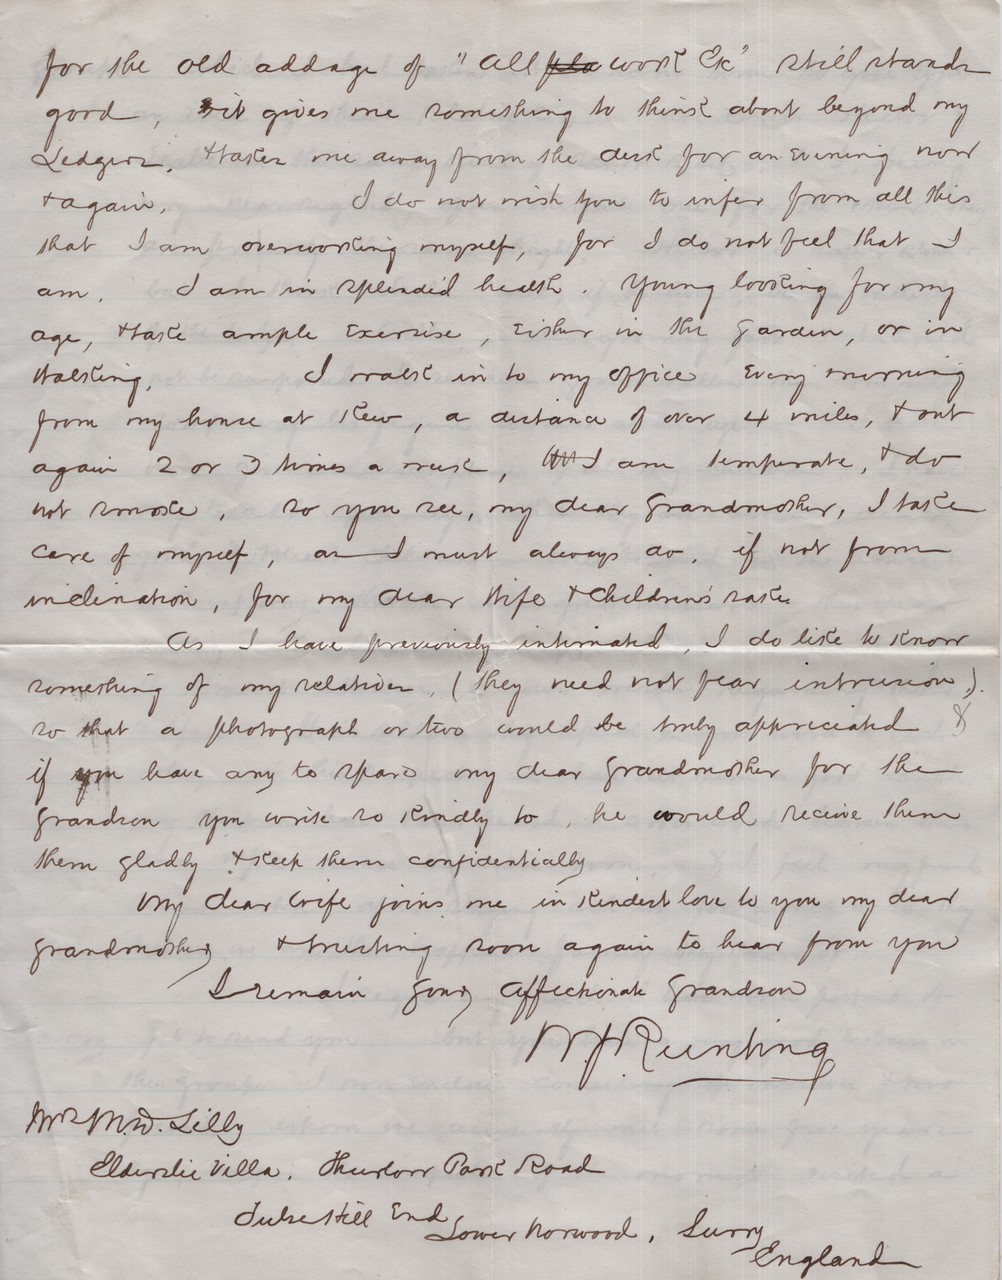 for the old addage of "All pla work &c" still stands
good, & it gives me something to think about beyond my
Ledgers, & takes me away from the desk for an evening now
& again. I do not wish you to infer from all this
that I am overworking myself, for I do not feel that I
am. I am in splendid health. Young looking for my
age, & take ample exercise, either in the garden, or in
Walking. I walk in to my office every morning
from my house at Kew, a distance of over 4 miles, & out
again 2 or 3 times a week, I am temperate, & do
not smoke, so you see, my dear Grandmother, I take
care of myself, as I must always do, if not from
inclination, for my dear Wife & Children's sake
As I have previously intimated, I do like to know
something of my relatives, (they need not fear intrusion),
so that a photograph or two would be truly appreciated
if you have any to spare my dear Grandmother for the
Grandson you write so kindly to, he would receive them
them gladly & keep them confidentially
My dear Wife joins me in kindest love to you my dear
grandmother & trusting soon again to hear from you
I remain your affectionate Grandson
W J Runting
Mrs M. W. Lilly
Elderslie Villa, Thurlow Park Road
Tulse Hill End
Lower Norwood, Surry
England